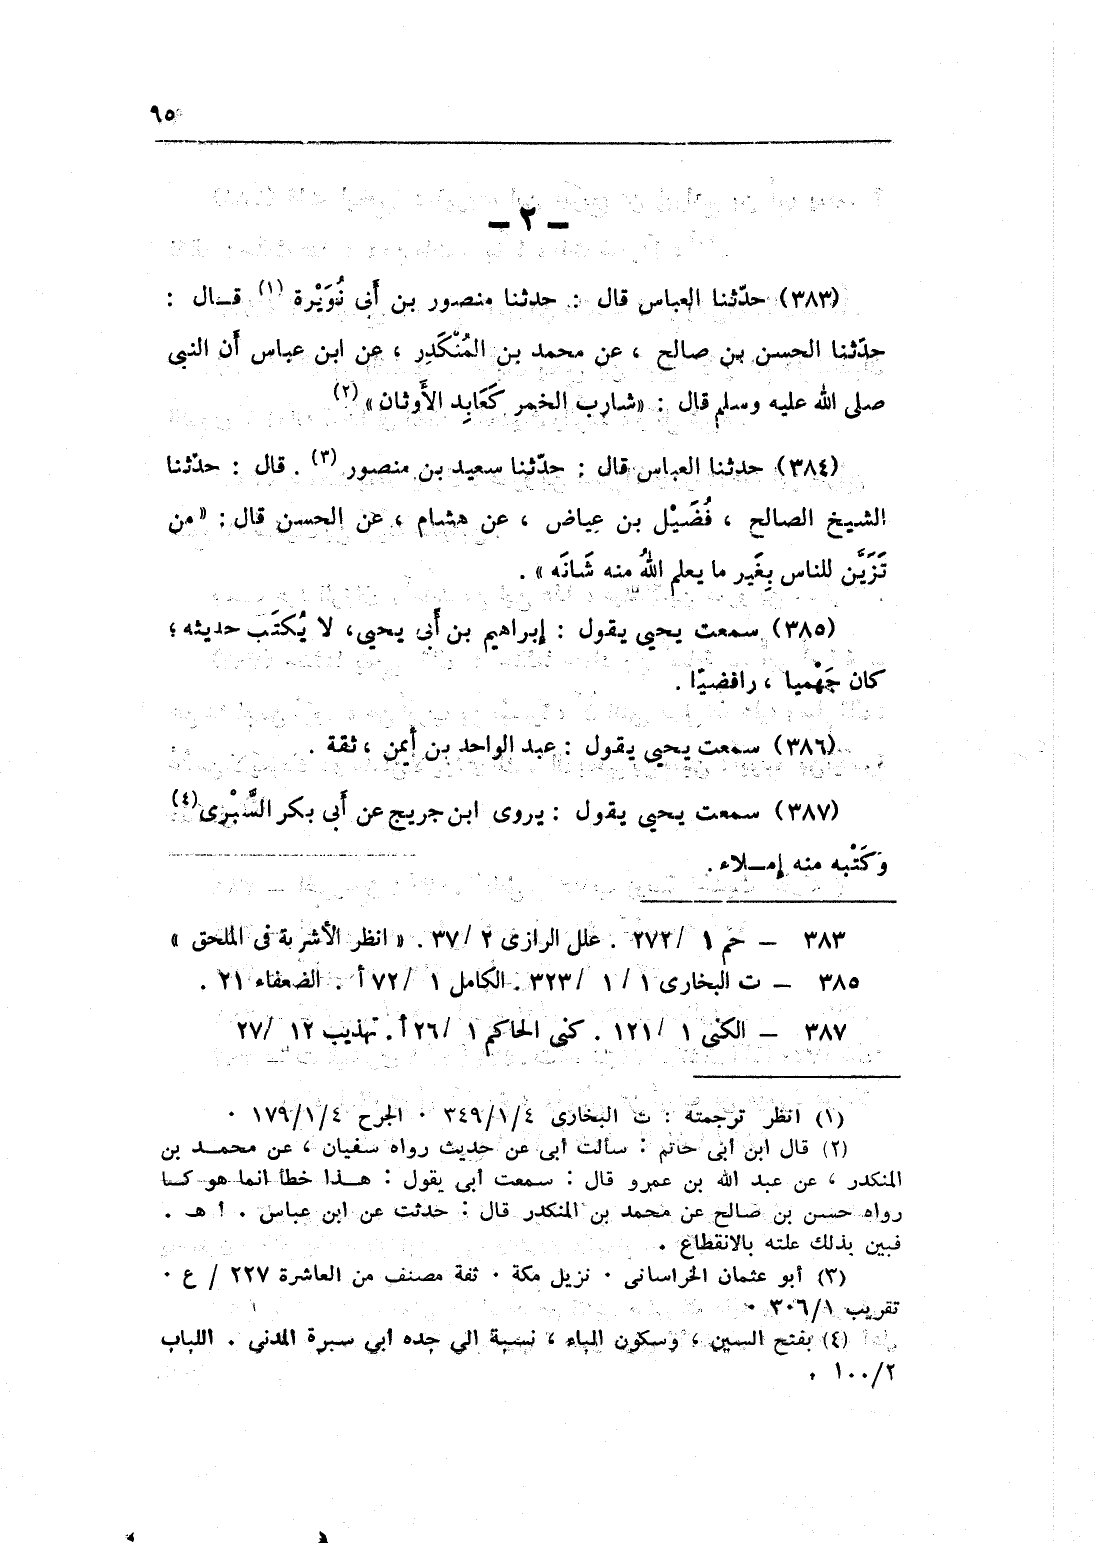 ٩٥
– ٢ –
(٣٨٣) حدّثنا العباس قال : حدثنا منصور بن أَبى نُوَيْرة (١) قــال :
حدّثنا الحسن بن صالح ، عن محمد بن المُنْكَدِر ، عن ابن عباس أَن النبى
صلى الله عليه وسلم قال : «شارب الخمر كَعَابِد الأَوثان» (٢)
(٣٨٤) حدثنا العباس قال : حدّثنا سعيد بن منصور (٣) . قال : حدّثنا
الشيخ الصالح ، فُضَيْل بن عِياض ، عن هشام ، عن الحسن قال : « من
تَزَيَّن للناس بِغَير ما يعلم اللهُ منه شَانَه » .
(٣٨٥) سمعت يحيى يقول : إبراهيم بن أَبى يحيى، لا يُكتَب حديثه ؛
كان جَهْميا ، رافضيًا .
(٣٨٦) سمعت يحيى يقول : عبد الواحد بن أَيمن ، ثقة .
(٣٨٧) سمعت يحيى يقول : يروى ابن جريج عن أَبى بكر السَّبْرى (٤)
وَكَتْبه منه إِمــلاء .
٣٨٣ – حم ١ /٢٧٢ . علل الرازى ٢ /٣٧ . « انظر الأشربة فى الملحق »
٣٨٥ – ت البخارى ١ / ١ /٣٢٣ . الكامل ١ /٧٢ أ . الضعفاء ٢١ .
٣٨٧ – الكنى ١ /١٢١ . كنى الحاكم ١ /٢٦ أ . تهذيب ١٢ /٢٧
(١) انظر ترجمته : ت البخارى ٣٤٩/١/٤ ٠ الجرح ١٧٩/١/٤ ٠
(٢) قال ابن أبى حاتم : سألت أبى عن حديث رواه سفيان ، عن محمــد بن
المنكدر ، عن عبد الله بن عمرو قال : سمعت أبى يقول : هــذا خطأ انما هو كــا
رواه حسن بن صالح عن محمد بن المنكدر قال : حدثت عن ابن عباس . أ هـ .
فبين بذلك علته بالانقطاع .
(٣) أبو عثمان الخراسانى ٠ نزيل مكة ٠ ثقة مصنف من العاشرة ٢٢٧ / ع ٠
تقريب ٣٠٦/١ ٠
(٤) بفتح السين ، وسكون الباء ، نسبة الي جده أبي سبرة المدني . اللباب
١٠٠/٢ .